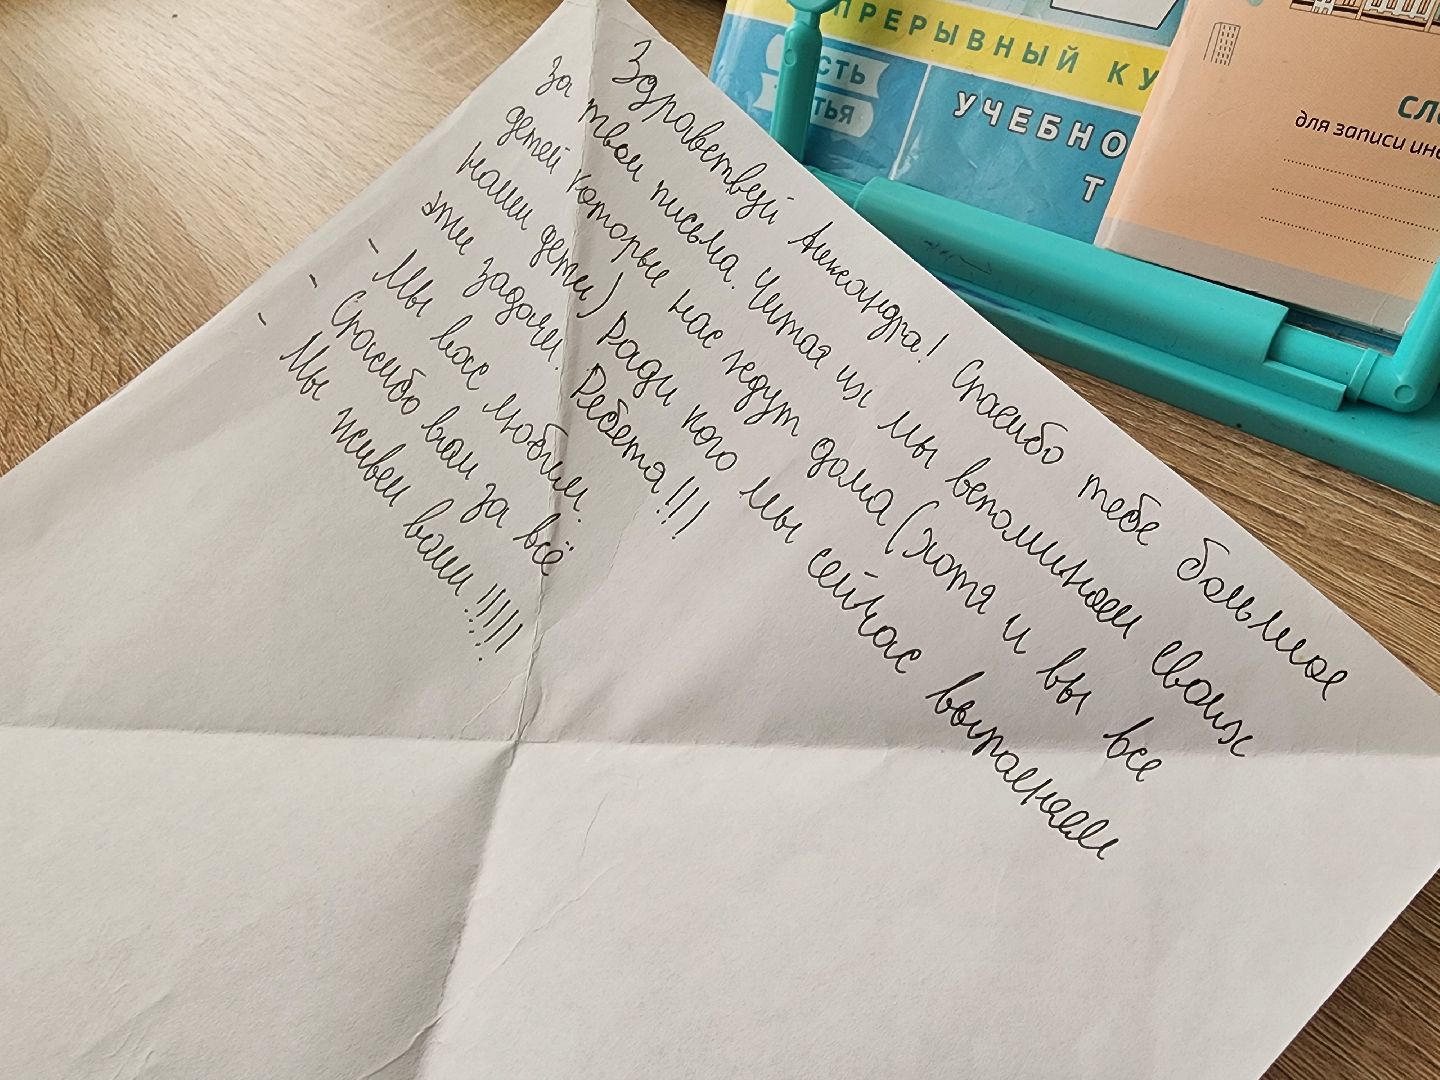 Здравствуй Александра! Спасибо тебе большое
за твои письма. Читая их мы вспоминаем своих
детей которые нас ждут дома (хотя и вы все
наши дети) Ради кого мы сейчас выполняем
эти задачи. Ребята!!!
- Мы вас любим.
- Спасибо вам за всё
- Мы живем вами!!!!!
ПРЕРЫВНЫЙ КУ
УЧЕБНО
Т
для записи ин